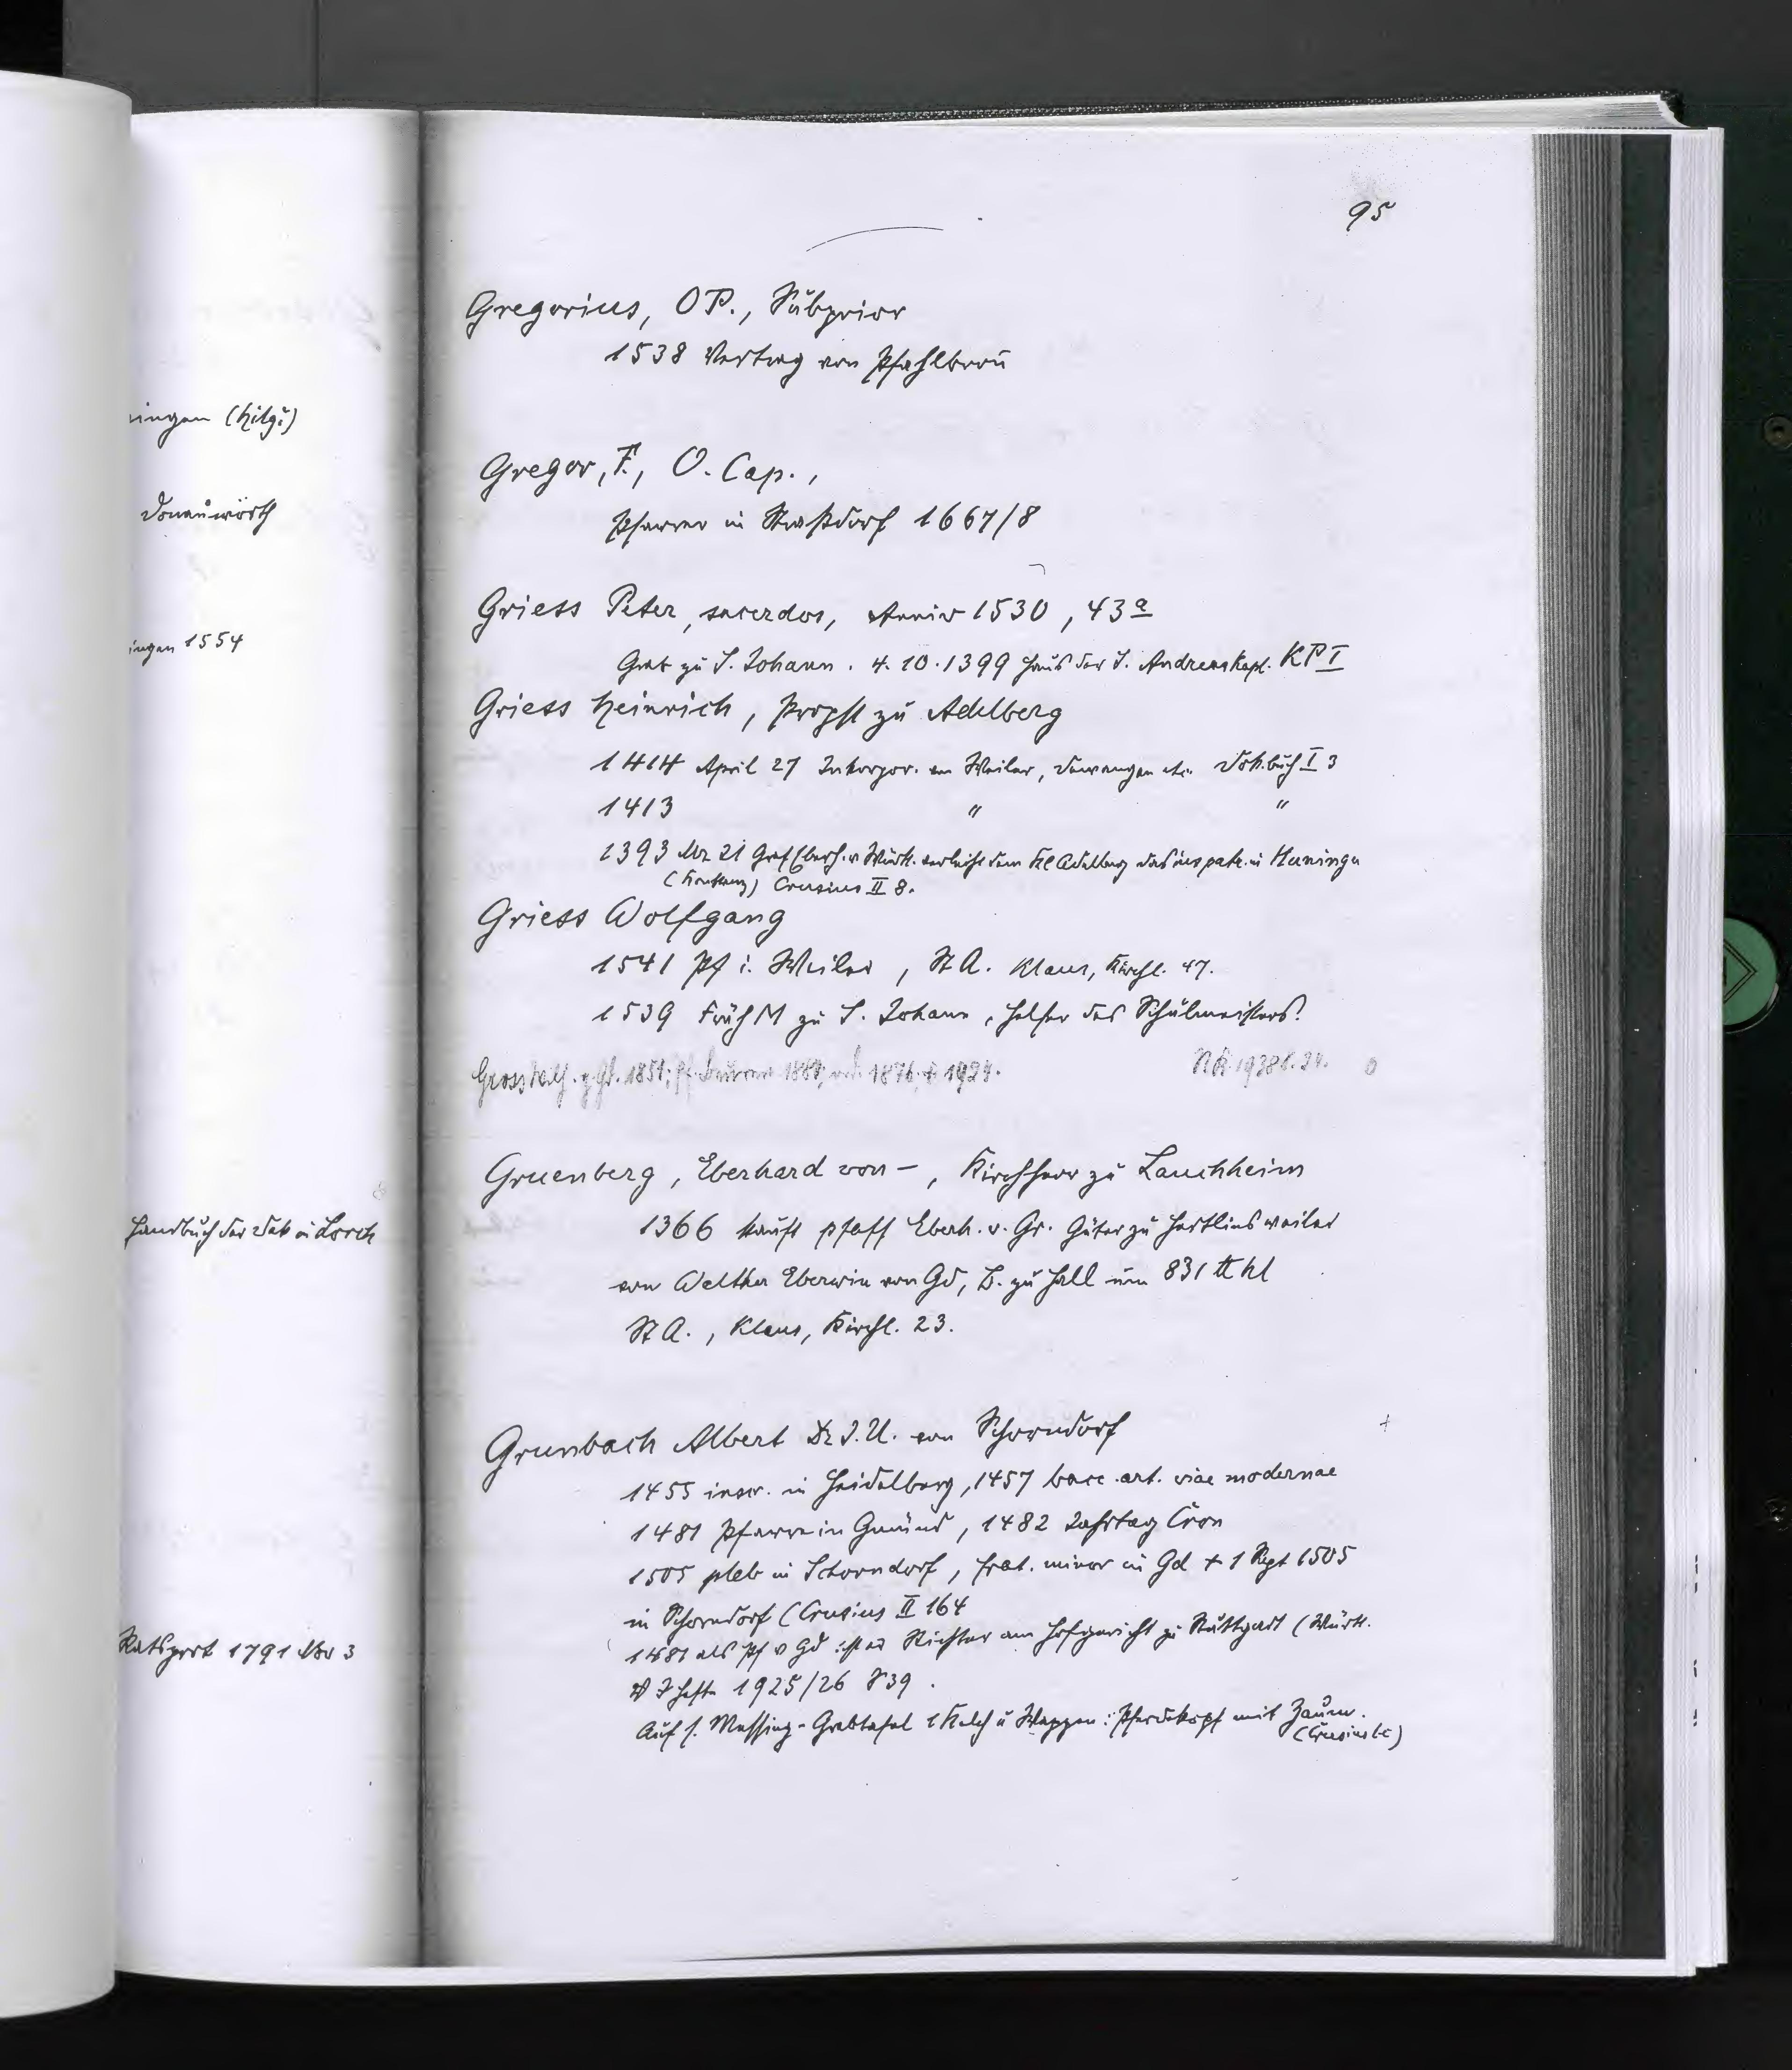 95
Gregorius, OP., Subprior
1538 Vertrag von Pfahlbronn
Gregor, F., O. Cap.,
Pfarrer in Straßdorf 1667/8
Griess Peter, sacerdos, Anniv 1530, 43a
Grab zu S. Johann. 4.10.1399 Haus der S. Andreaskapl. KP I
Griess Heinrich, Propst zu Adelberg
1414 April 27 Inkorpor. von Weiler, Dewangen etc. Dok.buch I 3
1413 " "
1393 Nov 21 Graf Eberh. v Württ. verleiht dem Kl Adelberg das ius patr. in Huningen
Crusius II 8.
Griess Wolfgang
1541 Pf i. Weiler, St A. Klaus, Kirchl. 47.
1539 Früh M zu S. Johann, Helfer des Schulmeisters?
Gross 1851; 1876, † 1924.
1938 S. 24. o
Gruenberg, Eberhard von –, Kirchherr zu Lauchheim
1366 kauft pfaff Eberh. v. Gr. Güter zu Hertlinsweiler
von Walther Eberwin von Gd, B. zu Hall um 831 ℔ hl
St A., Klaus, Kirchl. 23.
Grunbach Albert Dr J. U. von Schorndorf +
1455 inscr. in Heidelberg, 1457 bacc. art. viae modernae
1481 Pfarrer in Gmünd, 1482 Jahrtag Cron
1505 pleb in Schorndorf, frat. minor in Gd + 1 Sept 1505
in Schorndorf (Crusius II 164
1481 als Pf v Gd ist er Richter am Hofgericht zu Stuttgart (Württ.
V J Hefte 1925/26 S 39.
Auf s. Messing-Grabtafel 1 Kelch u Wappen: Pferdekopf mit Zaum.
(Crusius l.c)
ningen (Hilgs)
Donauwörth
ingen 1554
Handbuch der Dek in Lorch
Ratsprot 1791 Nov 3